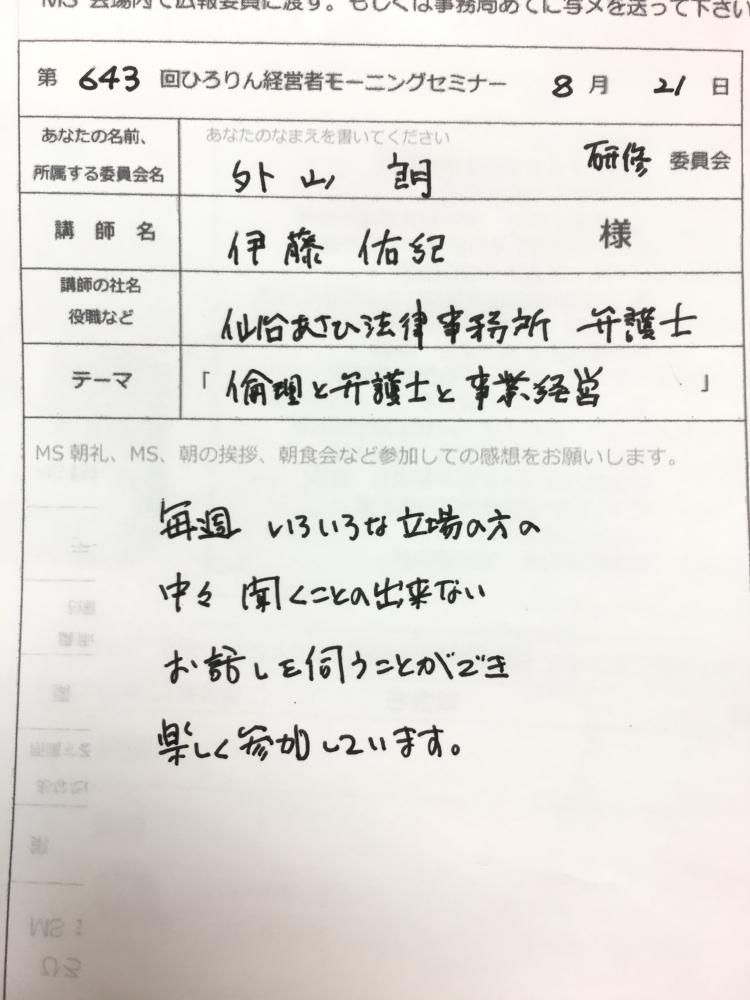 MS 会場内で広報委員に渡す。もしくは事務局あてに写メを送って下さい
第 643 回ひろりん経営者モーニングセミナー 8 月 21 日
あなたの名前、
所属する委員会名
あなたのなまえを書いてください
外山 朗 研修 委員会
講 師 名
伊藤 佑紀 様
講師の社名
役職など
仙台あさひ法律事務所 弁護士
テーマ
「倫理と弁護士と事業経営 」
MS 朝礼、MS、朝の挨拶、朝食会など参加しての感想をお願いします。
毎週 いろいろな立場の方の
中々 聞くことの出来ない
お話しを伺うことができ
楽しく参加しています。